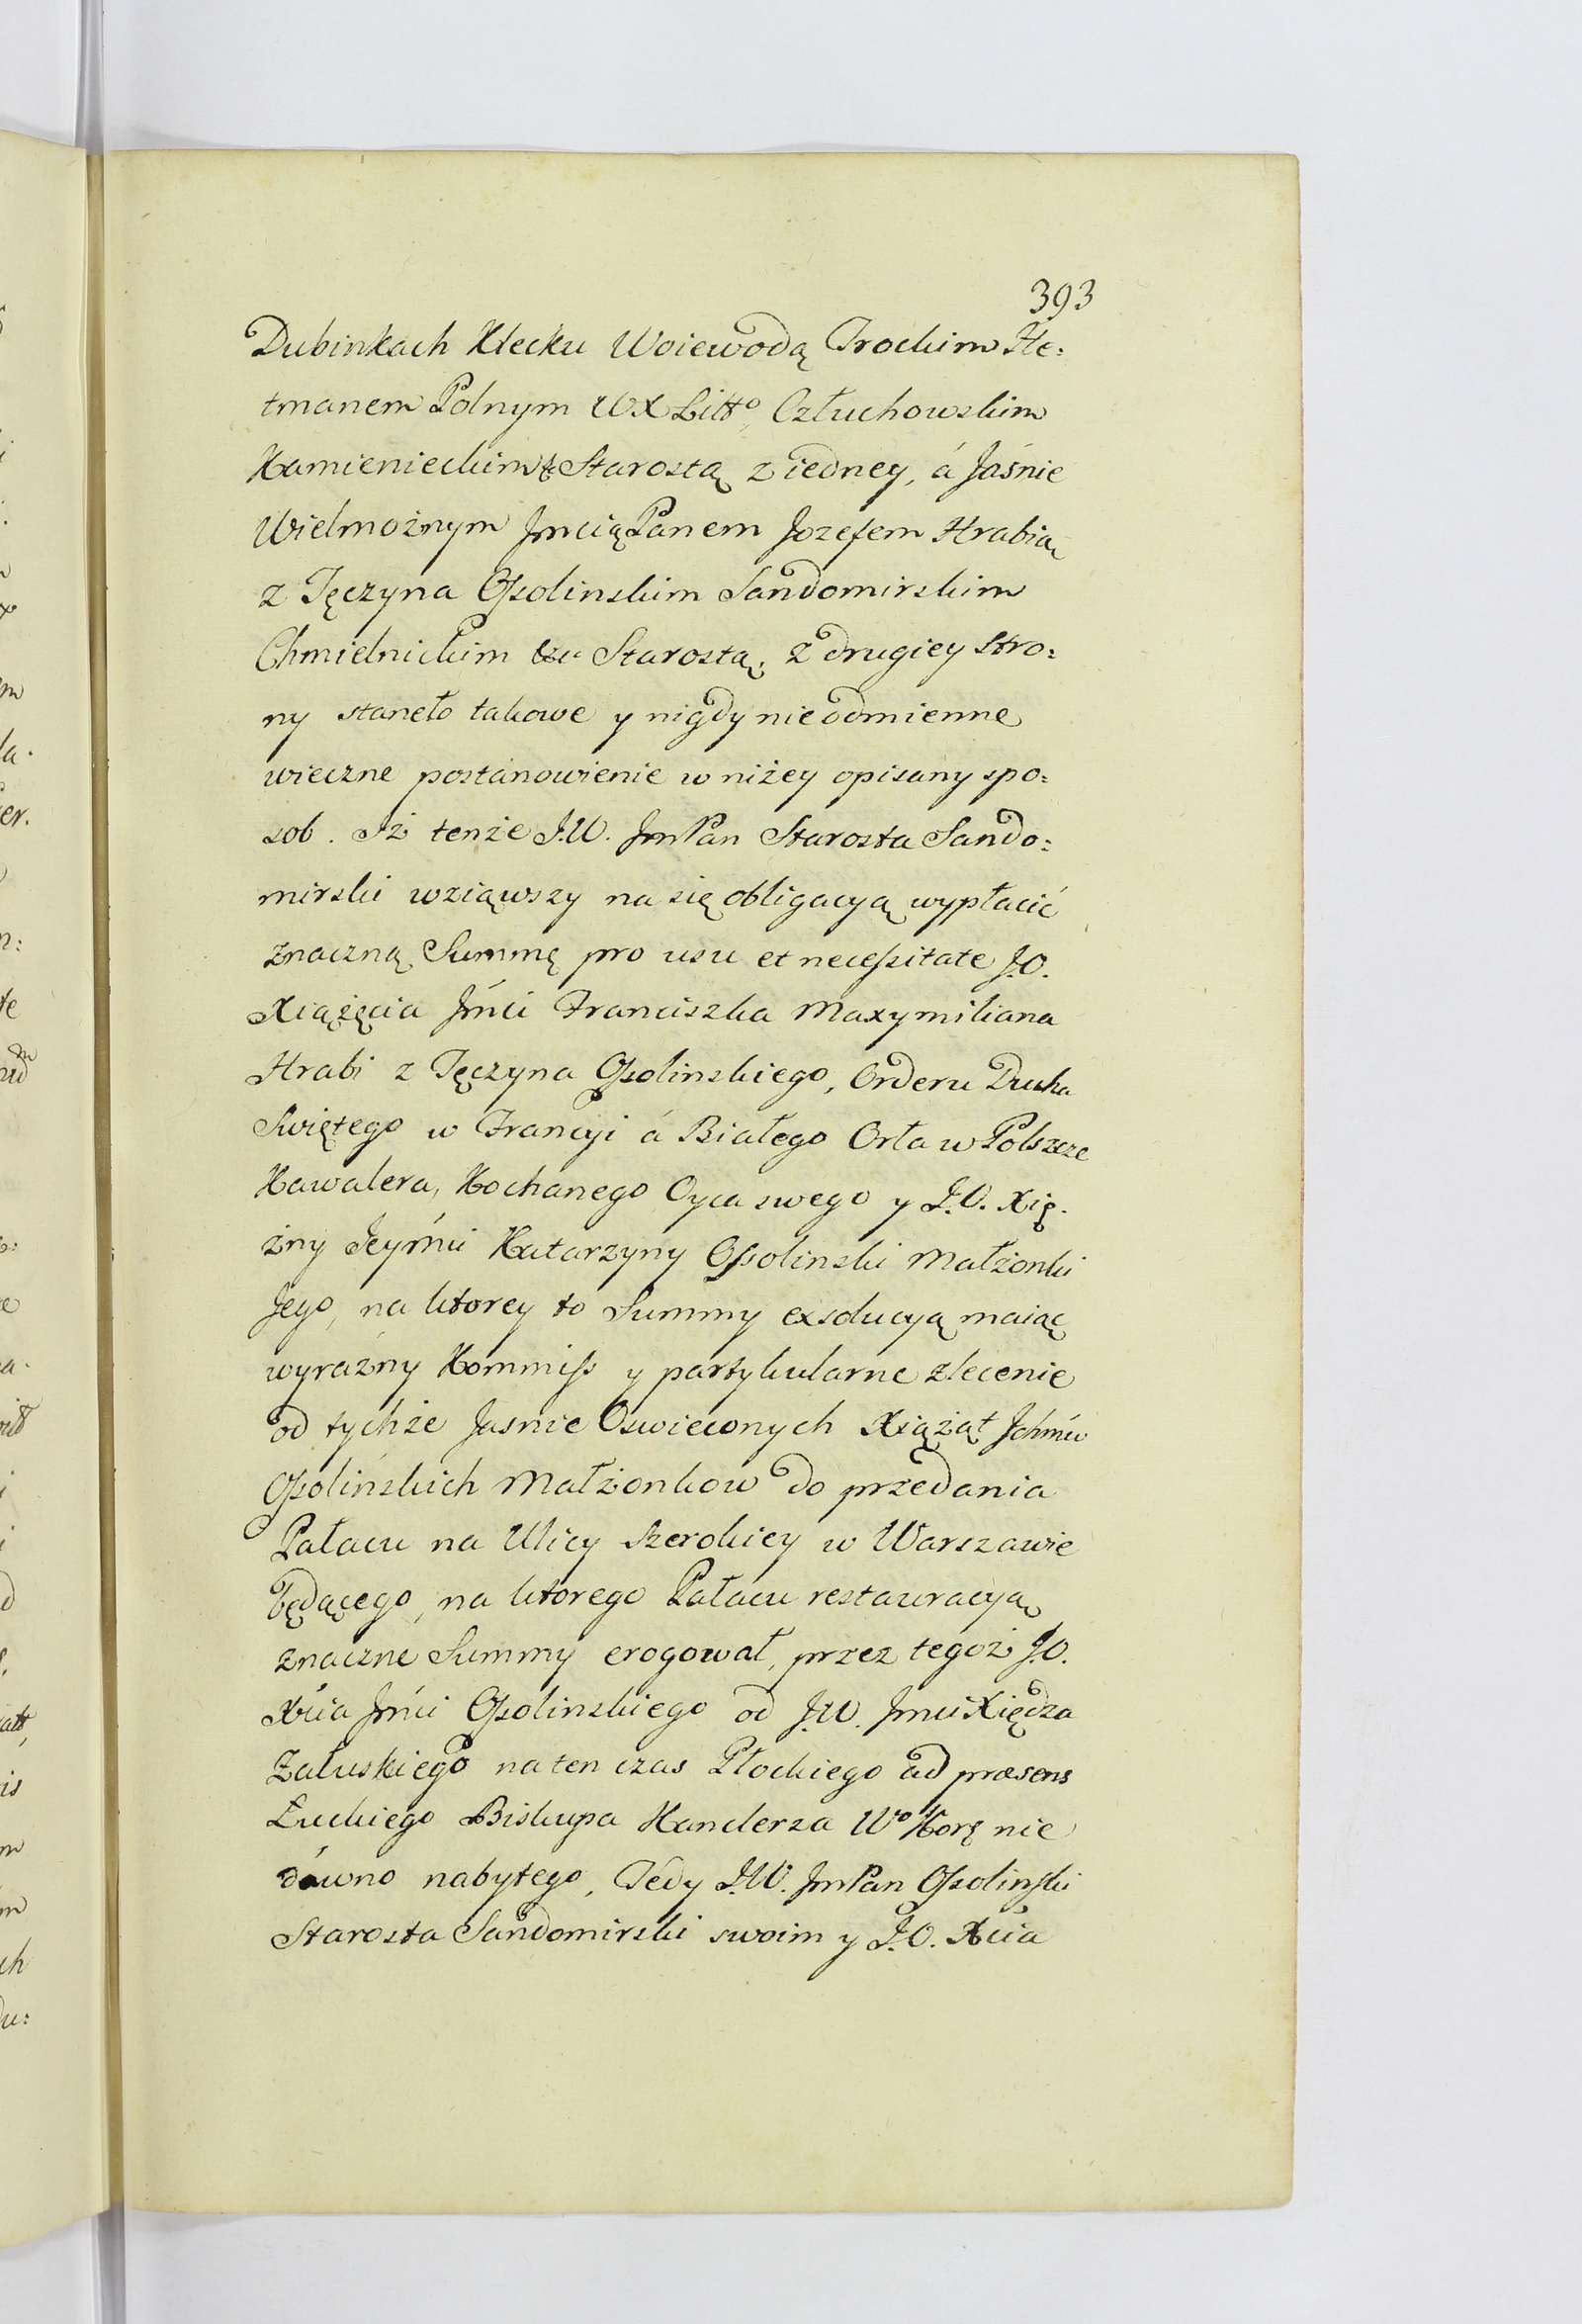 393
Dubinkach Klecku Woiewodą Trockim He:
tmanem Polnym WX Litto, Człuchowskim
Kamienieckim & Starostą z iedney, á Jaśnie
Wielmożnym Jmcią Panem Jozefem Hrabią
z Tęczyna Ossolinskim Sandomirskim
Chmielnickim &c Starostą, z drugiey stro:
ny staneło takowe y nigdy nieodmienne
wieczne postanowienie w niżey opisany spo:
sob. Iż tenże J.W. JmPan Starosta Sando:
mirski wziąwszy na się obligacyą wypłacić
znaczną Summę pro usu et necessitate J.O.
Xiążęcia Jmci Franciszka Maxymiliana
Hrabi z Tęczyna Ossolinskiego, Orderu Ducha
Swiętego w Francyi á Białego Orła w Polszcze
Kawalera, Kochanego Oyca swego y J.O. Xię.
żny Jeymci Katarzyny Ossolinski Małżonki
Jego, na ktorey to Summy exsolucyą maiąc
wyraźny Kommiss y partykularne zlecenie
od tychże Jasnie Oswieconych Xiążąt Jchmci
Ossolińskich Małżonkow do przedania
Pałacu na Ulicy Szerokiey w Warszawie
będącego, na ktorego Pałacu restauracyą
znaczne Summy erogował, przez tegoż J.O.
Xcia Jmci Ossolinskiego od J.W. Jmci Xiędza
Załuskiego na ten czas Płockiego ad præsens
Łuckiego Biskupa Kanclerza Wo Korę nie
dawno nabytego, Tedy J.W. JmPan Ossolinski
Starosta Sandomirski swoim y J.O. Xcia